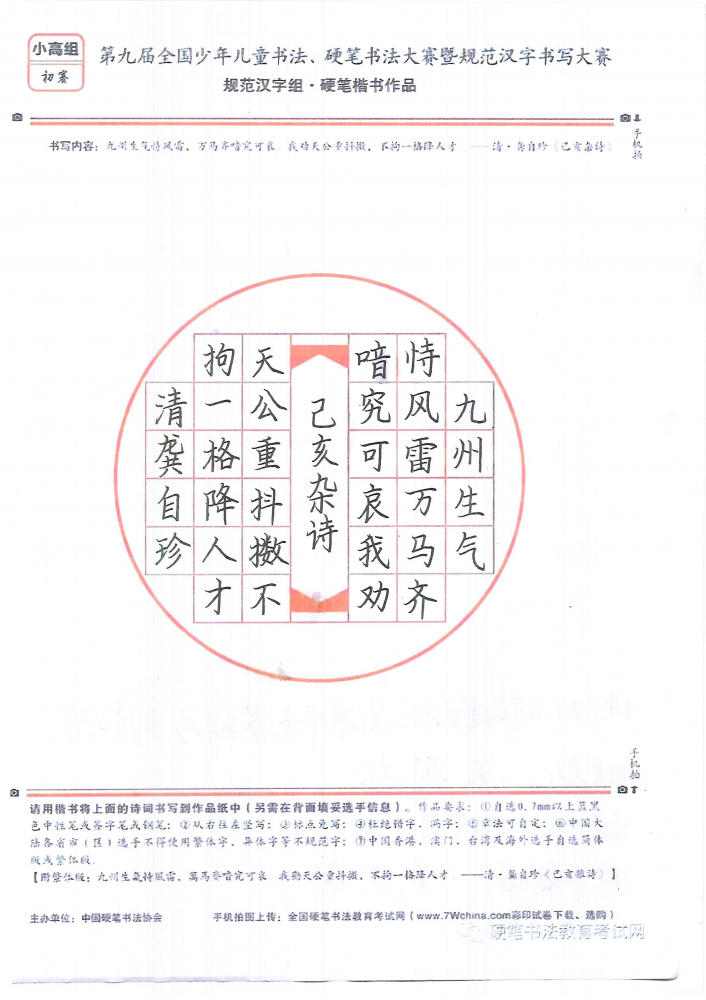 小高组
初赛
第九届全国少年儿童书法、硬笔书法大赛暨规范汉字书写大赛
规范汉字组·硬笔楷书作品
手机拍
书写内容：九州生气恃风雷，万马齐喑究可哀。我劝天公重抖擞，不拘一格降人才。——清·龚自珍《己亥杂诗》
九州生气
恃风雷万马齐
喑究可哀我劝
己亥杂诗
天公重抖擞不
拘一格降人才
清龚自珍
手机拍
请用楷书将上面的诗词书写到作品纸中（另需在背面填妥选手信息）。作品要求：①自选0.7mm以上蓝黑
色中性笔或签字笔或钢笔；②从右往左竖写；③标点免写；④杜绝错字、漏字；⑤章法可自定；⑥中国大
陆各省市（区）选手不得使用繁体字、异体字等不规范字；⑦中国香港、澳门、台湾及海外选手自选简体
版或繁体版。
【附繁体版：九州生氣恃風雷，萬馬齊喑究可哀。我勸天公重抖擻，不拘一格降人才。——清·龔自珍《己亥雜詩》】
主办单位：中国硬笔书法协会
手机拍图上传：全国硬笔书法教育考试网（www.7Wchina.com彩印试卷下载、选购）
硬笔书法教育考试网